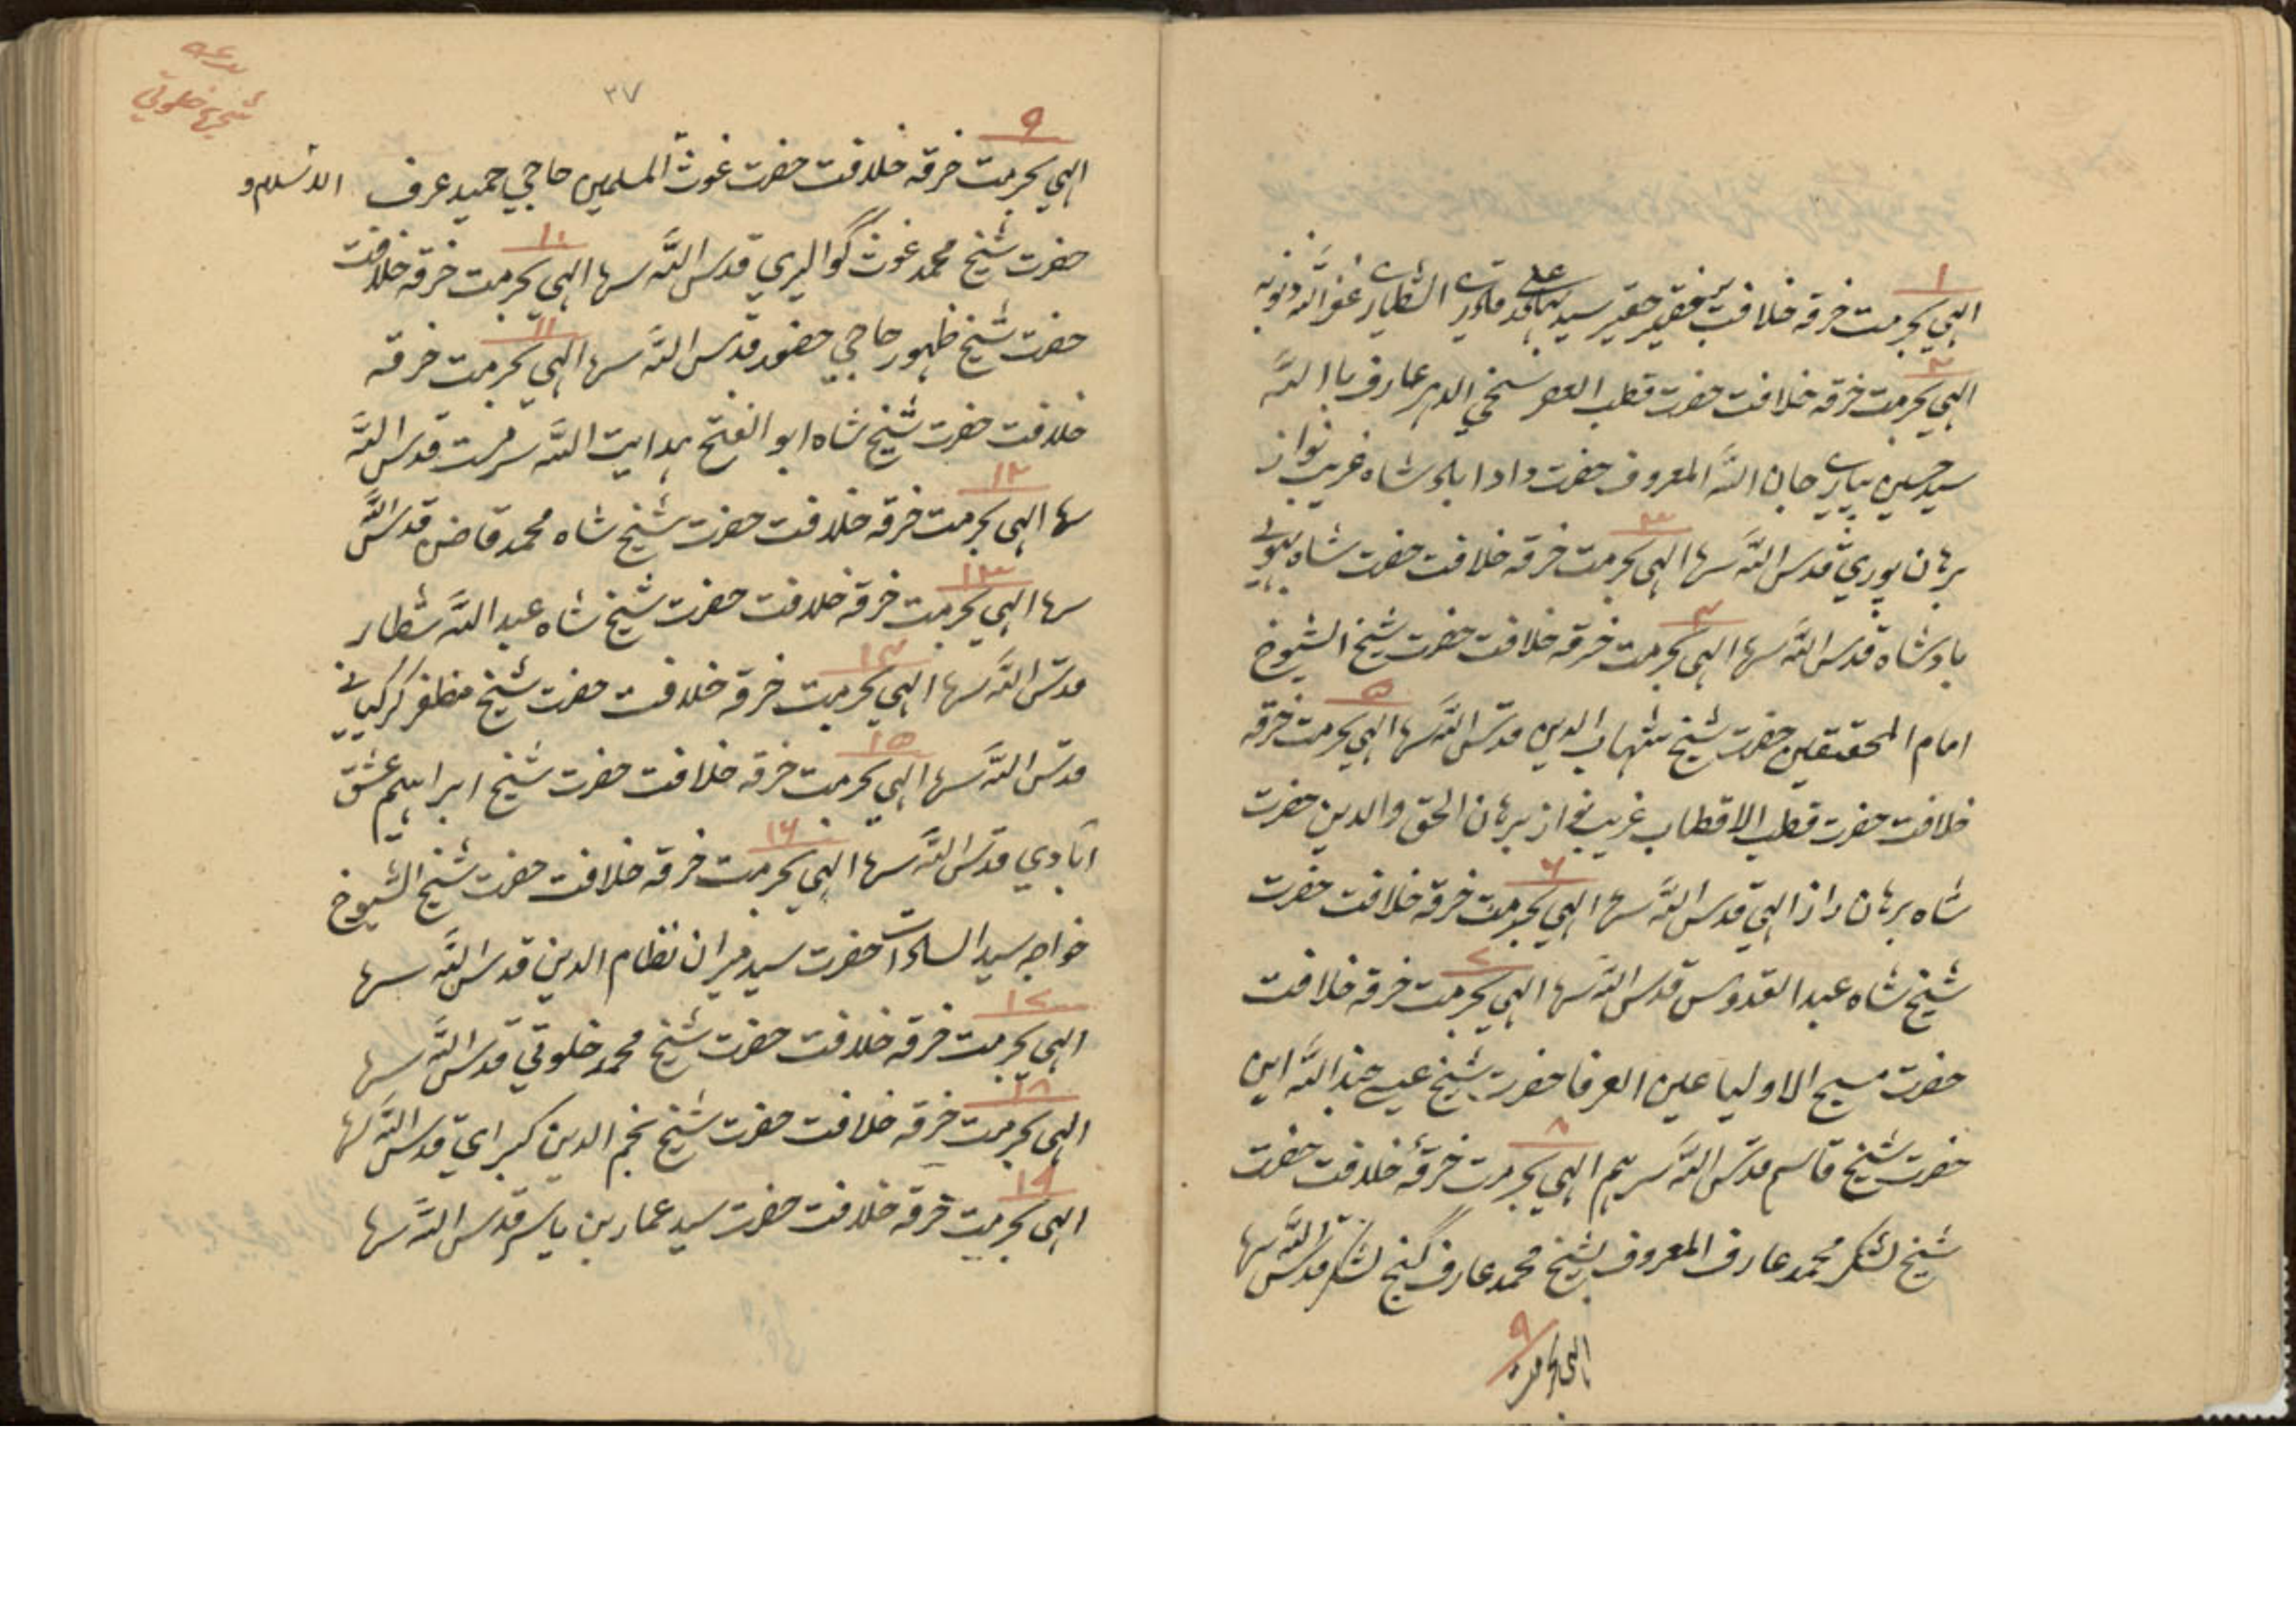 ۱
الهي بحرمت خرقه خلافت فقير حقير سيد قادري الشطاري غفر الله ذنوبه
۲
الهي بحرمت خرقه خلافت حضرت قطب العصر سخي الدهر عارف باالله
سيد حسين پياري جان الله المعروف حضرت دادا شاه غريب نواز
۳
برهان پوري قدس الله سرها الهي بحرمت خرقه خلافت حضرت شاه
۴
بادشاه قدس الله سرها الهي بحرمت خرقه خلافت حضرت شيخ الشيوخ
۵
امام المحققين حضرت شيخ شهاب الدين قدس الله سرها الهي بحرمت خرقه
خلافت حضرت قطب الاقطاب غريب نواز برهان الحق والدين حضرت
۶
شاه برهان راز الهي قدس الله سرها الهي بحرمت خرقه خلافت حضرت
۷
شيخ شاه عبد القدوس قدس الله سرها الهي بحرمت خرقه خلافت
حضرت مسيح الاوليا عين العرفا حضرت شيخ عيسى جند الله ابن
۸
حضرت شيخ قاسم قدس الله سرهم الهي بحرمت خرقهٔ خلافت حضرت
شيخ لشكر محمد عارف المعروف بشيخ محمد عارف گنج لشكر قدس الله سرها
۹
الهي بحرمت
۳۷
شجرهٔ خلوتي
۹
الهي بحرمت خرقه خلافت حضرت غوث المسلمين حاجي حميد عرف الاسلام و
۱۰
حضرت شيخ محمد غوث گواليري قدس الله سرها الهي بحرمت خرقه خلافت
۱۱
حضرت شيخ ظهور حاجي حضور قدس الله سرها الهي بحرمت خرقه
خلافت حضرت شيخ شاه ابو الفتح هدايت الله سرمست قدس الله
۱۲
سرها الهي بحرمت خرقه خلافت حضرت شيخ شاه محمد قاضن قدس الله
۱۳
سرها الهي بحرمت خرقه خلافت حضرت شيخ شاه عبد الله شطار
۱۴
قدس الله سرها الهي بحرمت خرقه خلافت حضرت شيخ مظفر كركياني
۱۵
قدس الله سرها الهي بحرمت خرقه خلافت حضرت شيخ ابراهيم عشق
۱۶
آبادي قدس الله سرها الهي بحرمت خرقه خلافت حضرت شيخ الشيوخ
خواجه سيد السادات حضرت سيد ميران نظام الدين قدس الله سرها
۱۷
الهي بحرمت خرقه خلافت حضرت شيخ محمد خلوتي قدس الله سرها
۱۸
الهي بحرمت خرقه خلافت حضرت شيخ نجم الدين كبراي قدس الله سرها
۱۹
الهي بحرمت خرقه خلافت حضرت سيد عمار بن ياسر قدس الله سرها